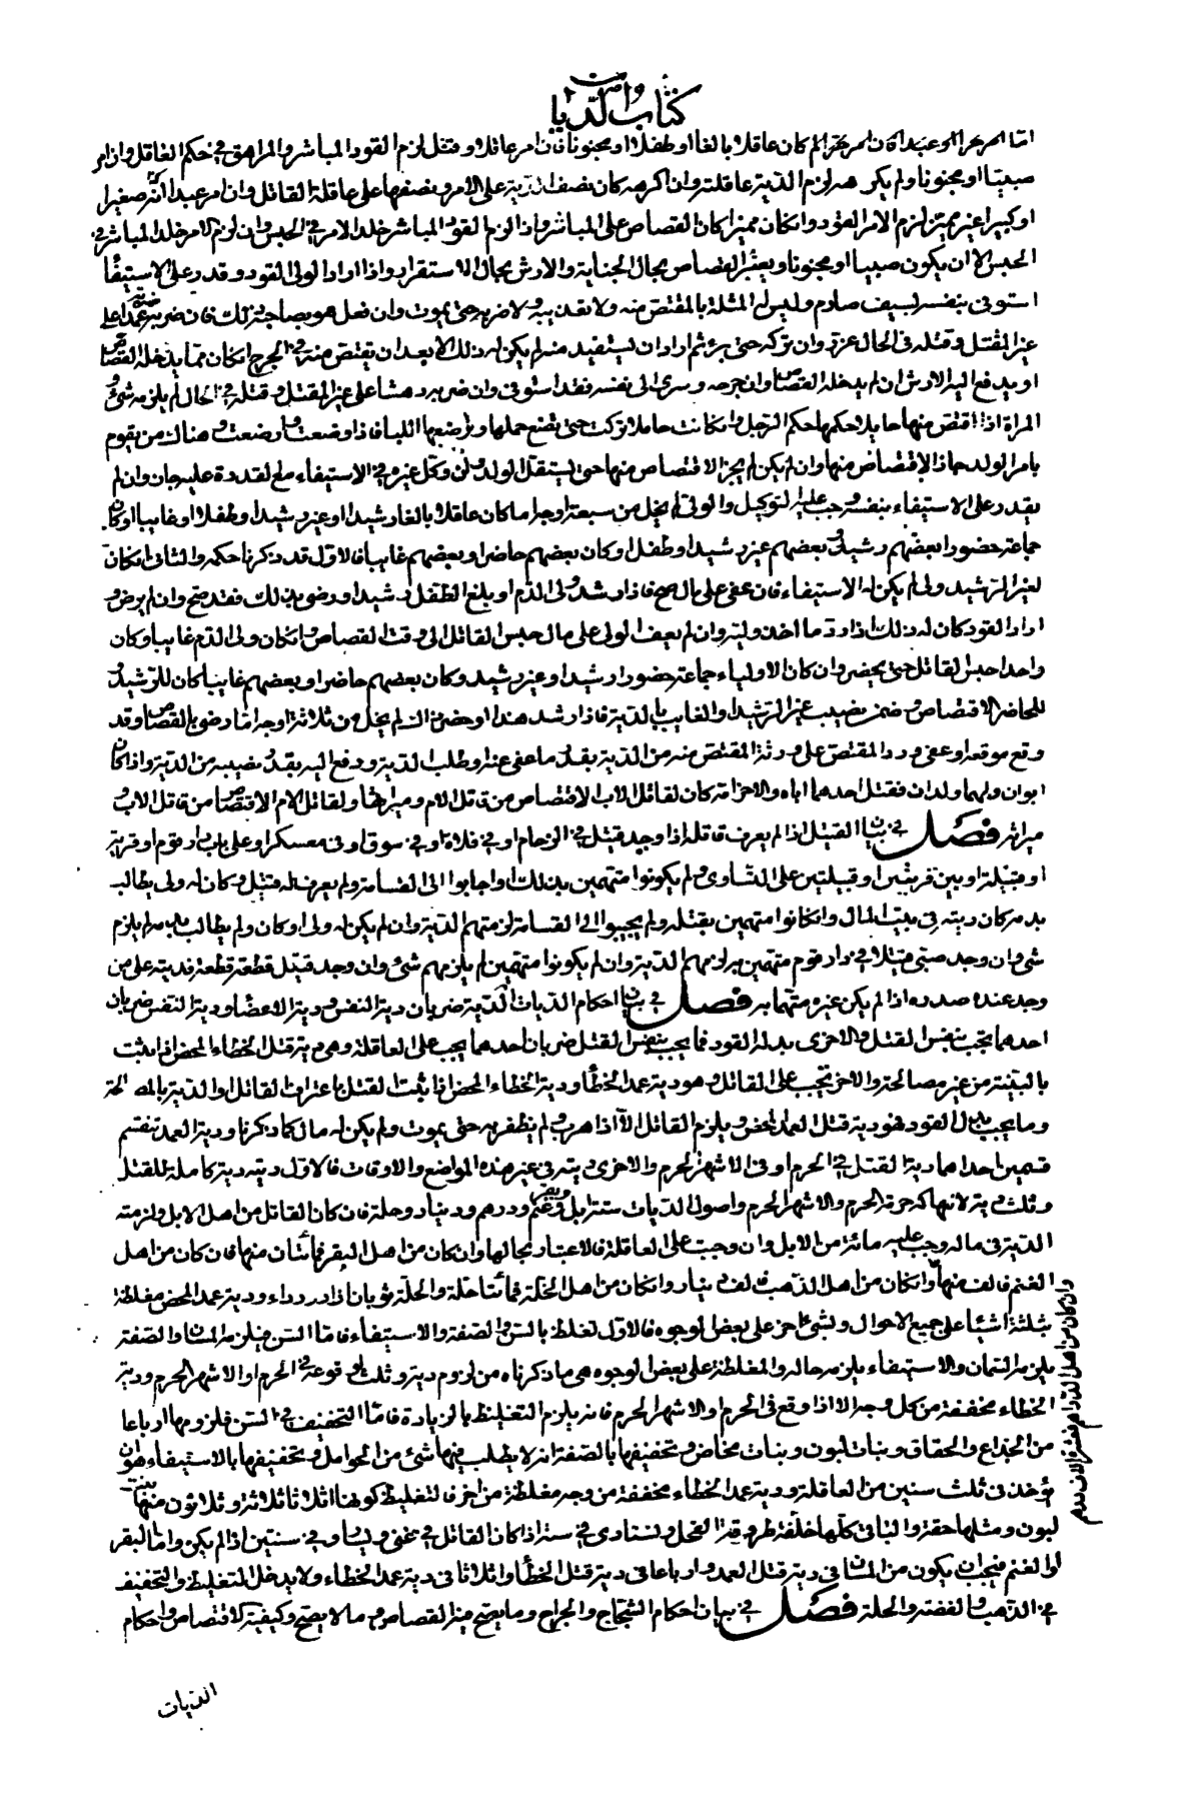 كتاب الديات
اما امر حر الحر او عبدا فان امر حر الم كان عاقلا بالغا او طفلا او مجنونا فان امر عاقلا وقتل لزم القود المباشر والمراهق في حكم العاقل وان امر
صبيا او مجنونا ولم يكرهه لزم الدية عاقلته وان اكرهه كان نصف الدية على الامر ونصفها على عاقلة القاتل وان امر عبدا له صغيرا
او كبيرا غير مميز لزم الامر القود وان كان مميزا كان القصاص على المباشر واذا لزم القود المباشر خلد الامر في الحبس وان لزم الامر خلد المباشر في
الحبس الا ان يكون صبيا او مجنونا ويعتبر القصاص بحال الجناية والارش بحال الاستقرار واذا اراد الولي القود وقدر على الاستيفاء
استوفى بنفسه بسيف صارم وليس له المثلة بالمقتص منه ولا تعذيبه ولا ضربه حتى يموت وان فعل هو بصاحبه ذلك فان ضربه عمدا على
غير المقتل وقتله في الحال عزر وان تركه حتى برئ ثم اراد ان يستقيد منه لم يكن له ذلك الا بعد ان يقتص منه في الجرح ان كان مما يدخله القصاص
او يدفع اليه الارش ان لم يدخله القصاص وان جرحه وسرى الى نفسه فقد استوفى وان ضربه دهشا على غير المقتل وقتله في الحال لم يلزمه شئ و
المراة اذا اقتص منها حايلا حكمها حكم الرجل وان كانت حاملا تركت حتى تضع حملها وترضعها اللبا فاذا وضعت وارضعت وهناك من يقوم
بامر الولد جاز الاقتصاص منها وان لم يكن لم يجز الاقتصاص منها حتى يستقل الولد ومن وكل غيره في الاستيفاء مع القدرة عليه جاز وان لم
يقدر على الاستيفاء بنفسه وجب عليه التوكيل والولي لم يخل من سبعة اوجه اما كان عاقلا بالغا رشيدا او غير رشيد او طفلا او غايبا او كان
جماعة حضورا بعضهم رشيد وبعضهم غير رشيد او طفل او كان بعضهم حاضرا وبعضهم غايبا فالاول قد ذكرنا حكمه والثاني ان كان
لغير الرشيد ولي لم يكن له الاستيفاء فان عفى على مال صح فاذا رشد ولي الدم او بلغ الطفل رشيدا ورضى بذلك فقد صح وان لم يرض و
اراد القود كان له ذلك اذا رد ما اخذ وليه وان لم يعف الولي على مال حبس القاتل الى وقت القصاص وان كان ولي الدم غايبا وكان
واحدا حبس القاتل حتى يحضر وان كان الاولياء جماعة حضورا رشيدا وغير رشيد وكان بعضهم حاضرا وبعضهم غايبا كان للرشيد و
للحاضر الاقتصاص وضمن نصيب غير الرشيد او الغايب بالدية فاذا رشد هذا او حضر ذاك لم يخل من ثلاثة اوجه اما رضى بالقصاص وقد
وقع موقعه او عفى ورد المقتص على ورثة المقتص منه من الدية بقدر ما عفى عنه او طلب الدية ودفع اليه بقدر نصيبه من الدية واذا كان
ابوان ولهما ولدان فقتل احدهما اباه والاخر امه كان لقاتل الاب الاقتصاص من قاتل الام وميراثها ولقاتل الام الاقتصاص من قاتل الاب و
ميراثه فصل في بيان القتيل اذا لم يعرف قاتله اذا وجد قتيل في الزحام او في فلاة او في سوق او في معسكر او على باب دار قوم او قرية
او قبيلة او بين قريتين او قبيلتين على التساوي ولم يكونوا متهمين بذلك او اجابوا الى القسامة ولم يعرف له قتيل وكان له ولي يطالب
بدمه كان ديته في بيت المال وان كانوا متهمين بقتله ولم يجيبوا الى القسامة لزمتهم الدية وان لم يكن له ولي او كان ولم يطالب بدمه لم يلزم
شئ وان وجد صبي قتيلا في دار قوم متهمين به لزمهم الدية وان لم يكونوا متهمين لم يلزمهم شئ وان وجد قتيل قطعة قطعة فديته على من
وجد عنده صدره اذا لم يكن غيره متهما به فصل في بيان احكام الديات الدية ضربان دية النفس ودية الاعضا ودية النفس ضربان
احدهما يجب بنفس القتل والاخرى بدله القود فما يجب بنفس القتل ضربان احدهما يجب على العاقلة وهى دية قتل الخطاء المحض اذا ثبت
بالبينة من غير مصالحة والاخر يجب على القاتل وهو دية عمد الخطأ ودية الخطاء المحض اذا ثبت القتل باعتراف القاتل او الدية بالمصالحة
وما يجب بدل القود فهو دية قتل العمد المحض ويلزم القاتل الا اذا هرب ولم يظفر به حتى يموت ولم يكن له مال كما ذكرنا ودية العمد تنقسم
قسمين احداهما دية القتل في الحرم او في الاشهر الحرم والاخرى ديته في غير هذه المواضع والاوقات فالاول ديته دية كاملة للقتل
وثلث دية لانتهاك حرمة الحرم والاشهر الحرم واصول الديات ستة ابل وبقر وغنم ودرهم ودينار وحلة فان كان القاتل من اهل الابل ولزمته
الدية في ماله وجب عليه مائة من الابل وان وجبت على العاقلة فالاعتبار بحالها وان كان من اهل البقر فمائتان منها فان كان من اهل
الغنم فالف منها وان كان من اهل الذهب فالف دينار وان كان من اهل الحلة فمائتا حلة والحلة ثوبان ازار ورداء ودية عمد المحض مغلظة
بثلثة اشياء على جميع الاحوال وبشئ اخر على بعض الوجوه فالاول تغلظ بالسن والصفة والاستيفاء فاما السن فيلزم المسان والصفة
يلزم السمان والاستيفاء يلزم حاله والمغلظة على بعض الوجوه هي ما ذكرناه من لزوم دية وثلث لوقوعه في الحرم او الاشهر الحرم ودية
الخطاء مخففة من كل وجه الا اذا وقع في الحرم او الاشهر الحرم فانه يلزم التغليظ بالزيادة فاما التخفيف في السن فلزومها ارباعا
من الجذاع والحقاق وبنات لبون وبنات مخاض وتخفيفها بالصفة انه لا يطلب فيها شئ من الحوامل وتخفيفها بالاستيفاء هو ان
يؤخذ في ثلث سنين من العاقلة ودية عمد الخطاء مخففة من وجه مغلظة من اخر فالتغليظ كونها اثلاثا ثلاثة وثلاثون منها بنت
لبون ومثلها حقة والباقي كلها خلفة طروقة الفحل وتستادى في سنة اذا كان القاتل في غنى ويسار وفي سنتين اذا لم يكن واما البقر
والغنم فيجب ان يكون من المسان في دية قتل العمد وارباعا في دية قتل الخطأ واثلاثا في دية عمد الخطاء ولا يدخل التغليظ والتخفيف
في الذهب والفضة والحلة فصل في بيان احكام الشجاج والجراح وما يصح فيه القصاص وما لا يصح وكيفية الاقتصاص واحكام
وان كان من اهل الدراهم فعشرة الاف درهم
الديات